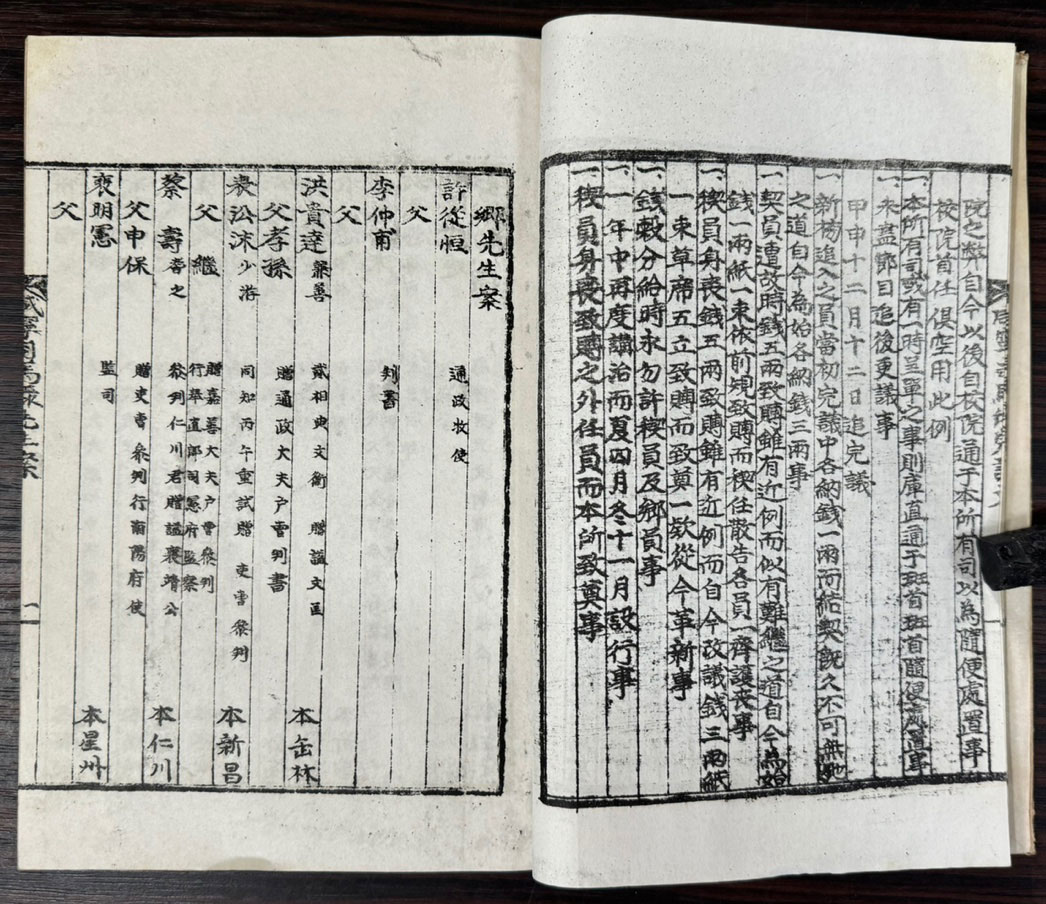 院之弊自今以後自校院通于本所有司以為隨便處置事
校院首任俱空用此例
一、本所有司或有一時並單之事則庫直通于班首班首隨便處置事
一、未盡節目追後更議事
甲申十二月十二日追完議
一、新榜追入之員當初完議中各納錢一兩而結契旣久不可無
之道自今為始各納錢三兩事
一、契員遭故時錢五兩致賻雖有近例而似有難繼之道自今為始
錢一兩紙一束依前規致賻而稧任散告各員一齊護喪事
一、稧員身喪錢五兩致賻雖有近例而自今改議錢三兩紙
一束草席五立致賻而致奠一欵從今革新事
一、錢穀分給時永勿許稧員及鄉員事
一、一年中再度講治而夏四月冬十一月設行事
一、稧員身喪致賻之外任員而本所致奠事
鄉先生案
許從恒 通政牧使
父
李仲甫 判書
父
洪貴達 兼善 貳相典文衡 贈謚文匡 本缶林
父孝孫 贈通政大夫戶曹判書
表沿沫 少游 同知丙午重試贈 吏曹叅判 本新昌
父繼 贈嘉善大夫戶曹叅判 行奉直郎司憲府監察
蔡壽 耆之 叅判仁川君贈謚襄靖公 本仁川
父申保 贈吏曹叅判行南陽府使
裵明憲 監司 本星州
父
一